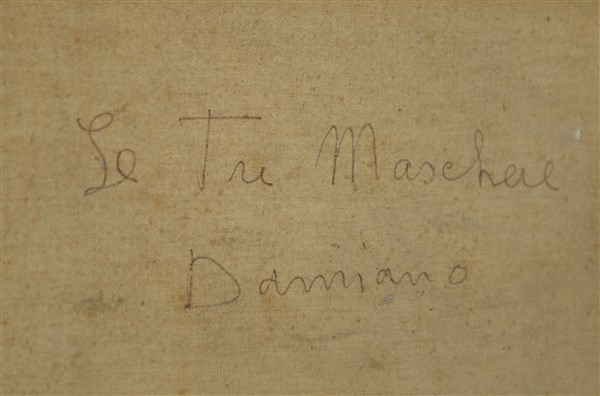 Le Tre Maschere
Damiano